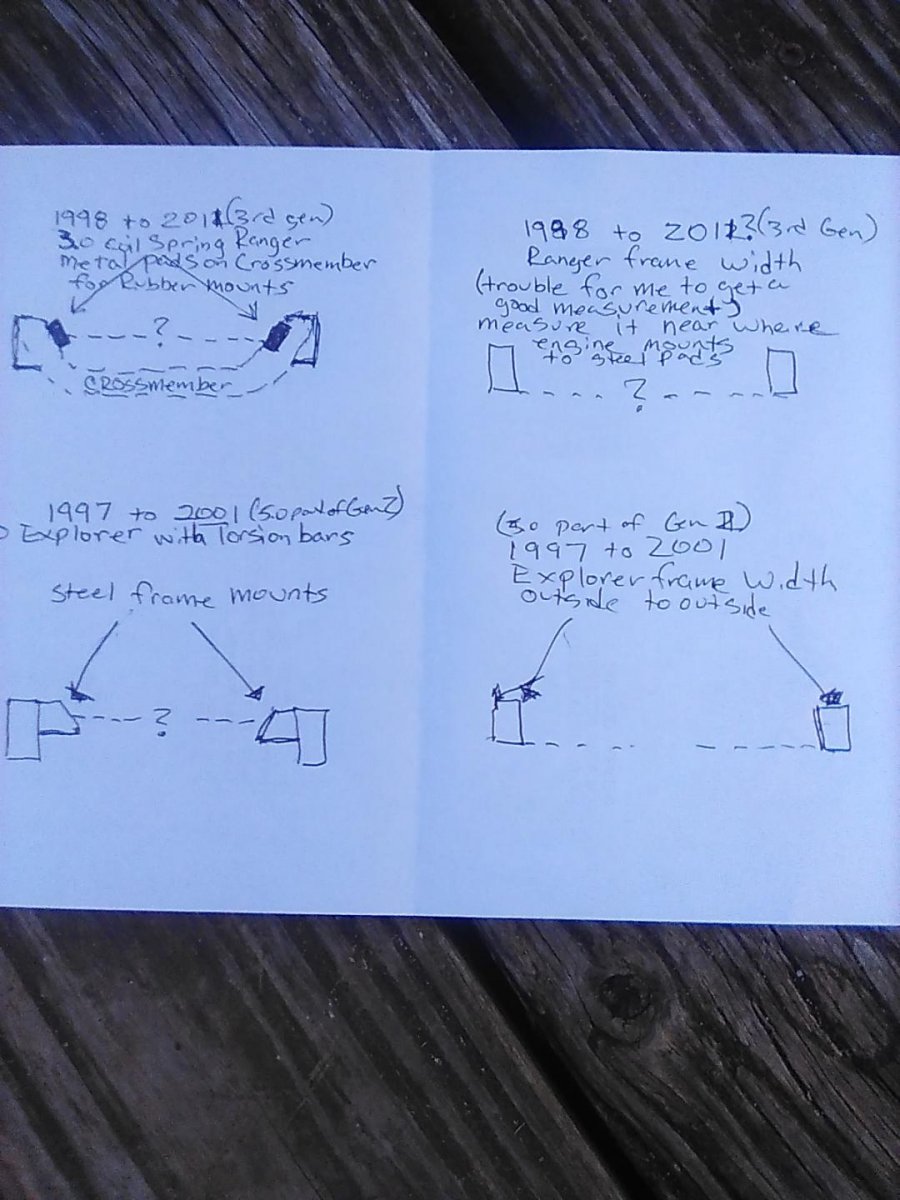 1998 to 2011 (3rd gen)
3.0 coil Spring Ranger
metal pads on Crossmember
for Rubber mounts
?
CROSSmember
1998 to 2011? (3rd Gen)
Ranger frame width
(trouble for me to get a
good measurement)
measure it near where
engine mounts
to steel pads
?
1997 to 2001 (5.0 part of Gen 2)
Explorer with Torsion bars
Steel frame mounts
?
(5.0 part of Gen II)
1997 to 2001
Explorer frame Width
outside to outside